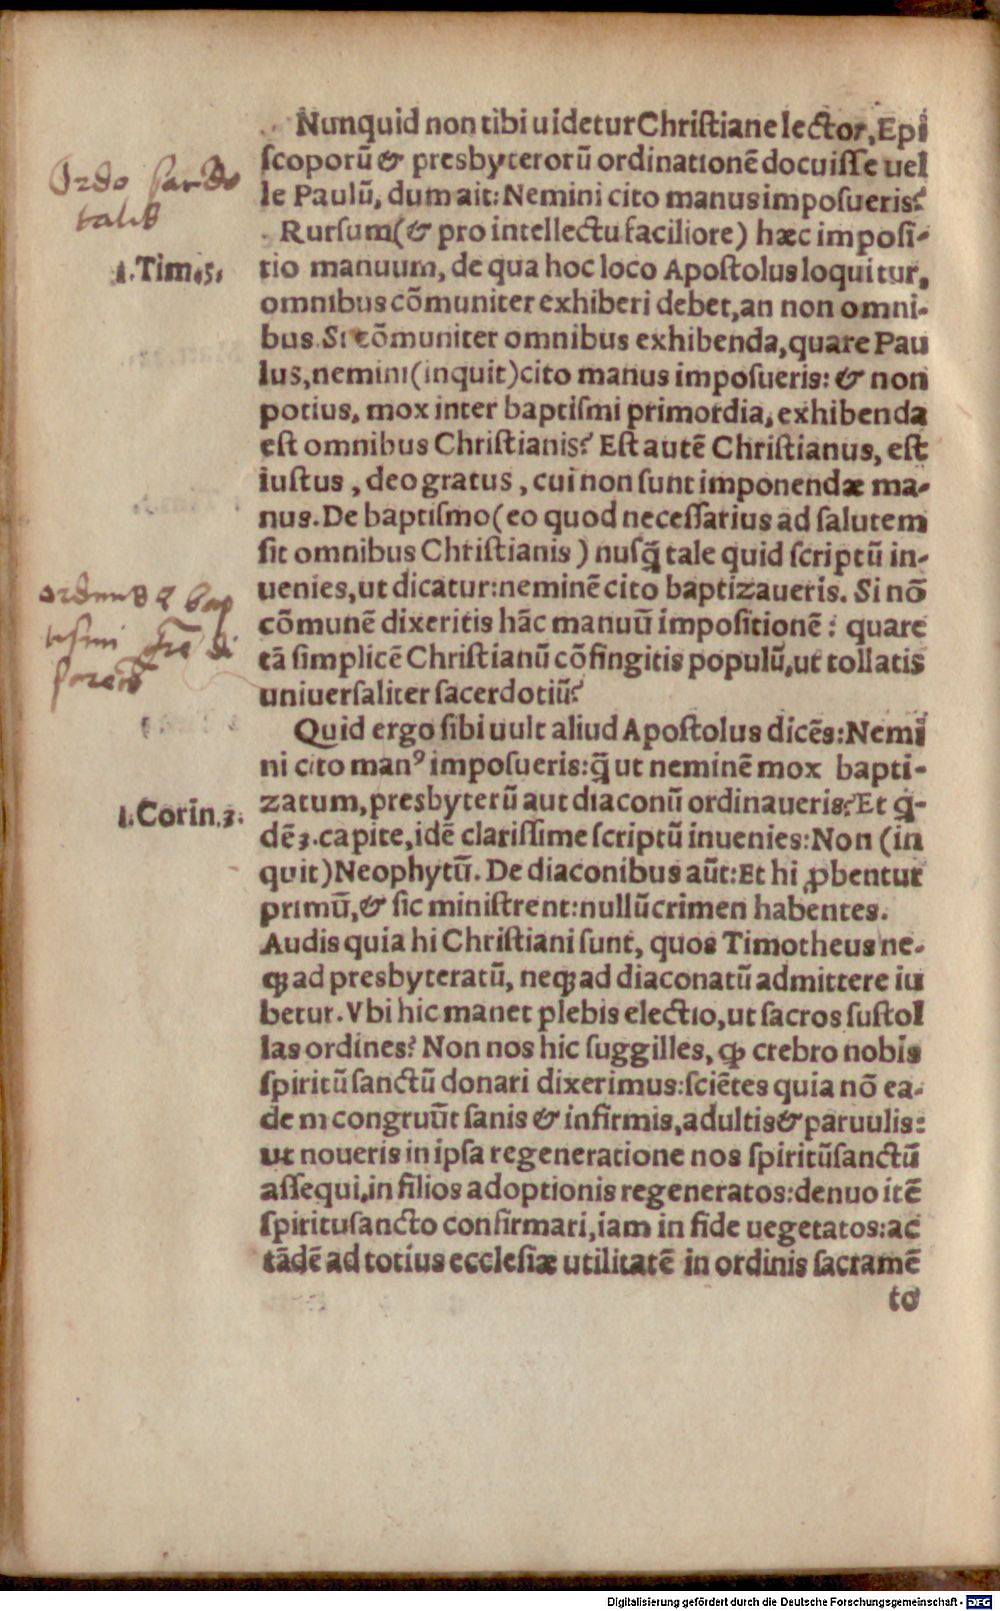 Nunquid non tibi uidetur Chriſtiane lector, Epi
ſcoporū & presbyterorū ordinationē docuiſſe uel
le Paulū, dum ait: Nemini cito manus impoſueris?
Rurſum (& pro intellectu faciliore) hæc impoſi-
tio manuum, de qua hoc loco Apoſtolus loquitur,
omnibus cōmuniter exhiberi debet, an non omni-
bus. Si cōmuniter omnibus exhibenda, quare Pau
lus, nemini (inquit) cito manus impoſueris: & non
potius, mox inter baptiſmi primordia, exhibenda
eſt omnibus Chriſtianis? Eſt autē Chriſtianus, eſt
iuſtus, deo gratus, cui non ſunt imponendæ ma-
nus. De baptiſmo (eo quod neceſſarius ad ſalutem
ſit omnibus Chriſtianis) nuſq̄ tale quid ſcriptū in-
uenies, ut dicatur: neminē cito baptizaueris. Si nō
cōmunē dixeritis hāc manuū impoſitionē: quare
tā ſimplicē Chriſtianū cōfingitis populū, ut tollatis
uniuerſaliter ſacerdotiū?
Quid ergo ſibi uult aliud Apoſtolus dicēs: Nemi
ni cito manꝰ impoſueris: q̄ ut neminē mox bapti-
zatum, presbyterū aut diaconū ordinaueris? Et q̄-
dē 3. capite, idē clariſſime ſcriptū inuenies: Non (in
quit) Neophytū. De diaconibus aūt: Et hi ꝓbentur
primū, & ſic miniſtrent: nullū crimen habentes.
Audis quia hi Chriſtiani ſunt, quos Timotheus ne-
qꝫ ad presbyteratū, neqꝫ ad diaconatū admittere iu
betur. Vbi hic manet plebis electio, ut ſacros ſuſtol
las ordines? Non nos hic ſuggilles, ꝙ crebro nobis
ſpiritū ſanctū donari dixerimus: ſciētes quia nō ea-
dem congruūt ſanis & infirmis, adultis & paruulis:
ut noueris in ipſa regeneratione nos ſpiritūſanctū
aſſequi, in filios adoptionis regeneratos: denuo itē
ſpirituſancto confirmari, iam in fide uegetatos: ac
tādē ad totius eccleſiæ utilitatē in ordinis ſacramē
to
Ordo sacerdo
talis
1. Tim. 5.
ordinis & bap
tismi
1. Corin. 3.
Digitalisierung gefördert durch die Deutsche Forschungsgemeinschaft - DFG